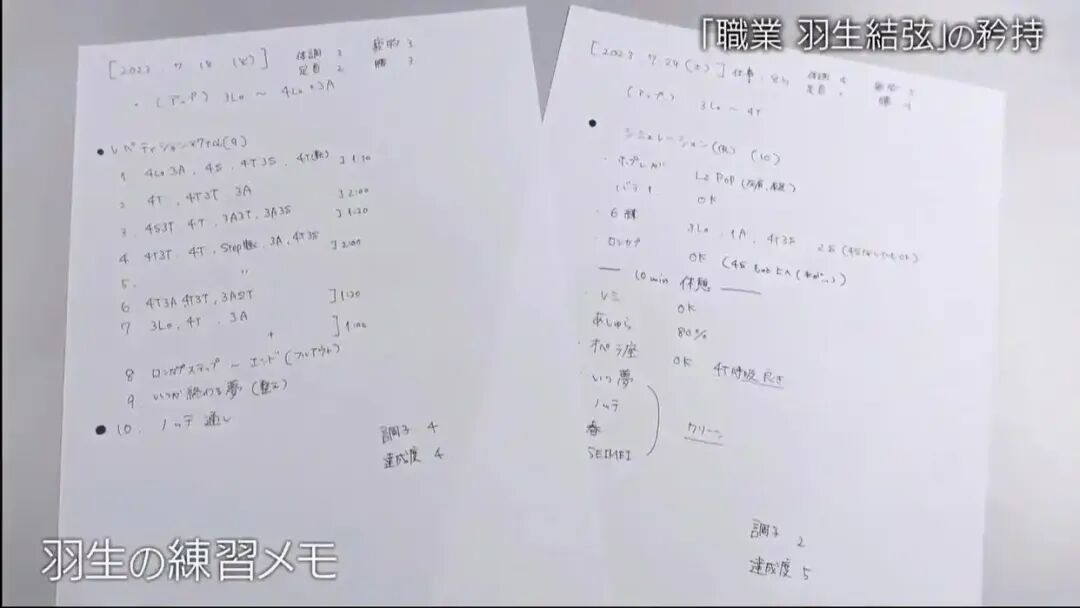 「職業 羽生結弦」の矜持
[2023. 7. 18 (火)] 体調 3 疲労 3
足首 2 腰 3
・(アップ) 3Lo ～ 4Lo+3A
● レペティション
1 4Lo3A, 4S, 4T3S, 4T ] 1:10
2 4T, 4T3T 3A ] 2:00
3. 4S3T 4T, 3A3T, 3A3S ] 1:20
4. 4T3T, 4T, Step, 3A, 4T3S ] 2:00
5. 〃
6 4T3A, 4T3T, 3A2T ] 1:20
7 3Lo, 4T, 3A ] 1:00
+
8 ロンカプステップ ～ エンド (フルアウト)
9 いつか終わる夢
● 10. ノッテ 通し
調子 4
達成度 4
[2023 7.29 (土)] 仕事 体調 4
(アップ) 3Lo ～ 4T
● シミュレーション
・ホプレガ Lz POP
・バラ1 OK
・6練 3Lo, 1A, 4T3S, 2S
・ロンカプ OK
― 10min 休憩 ―
・レミ OK
あしゅら 80%
・オペラ座 OK 4T呼吸 良き
・いつ夢
ノッテ
春 クリーン
SEIMEI
調子 2
達成度 5
羽生の練習メモ